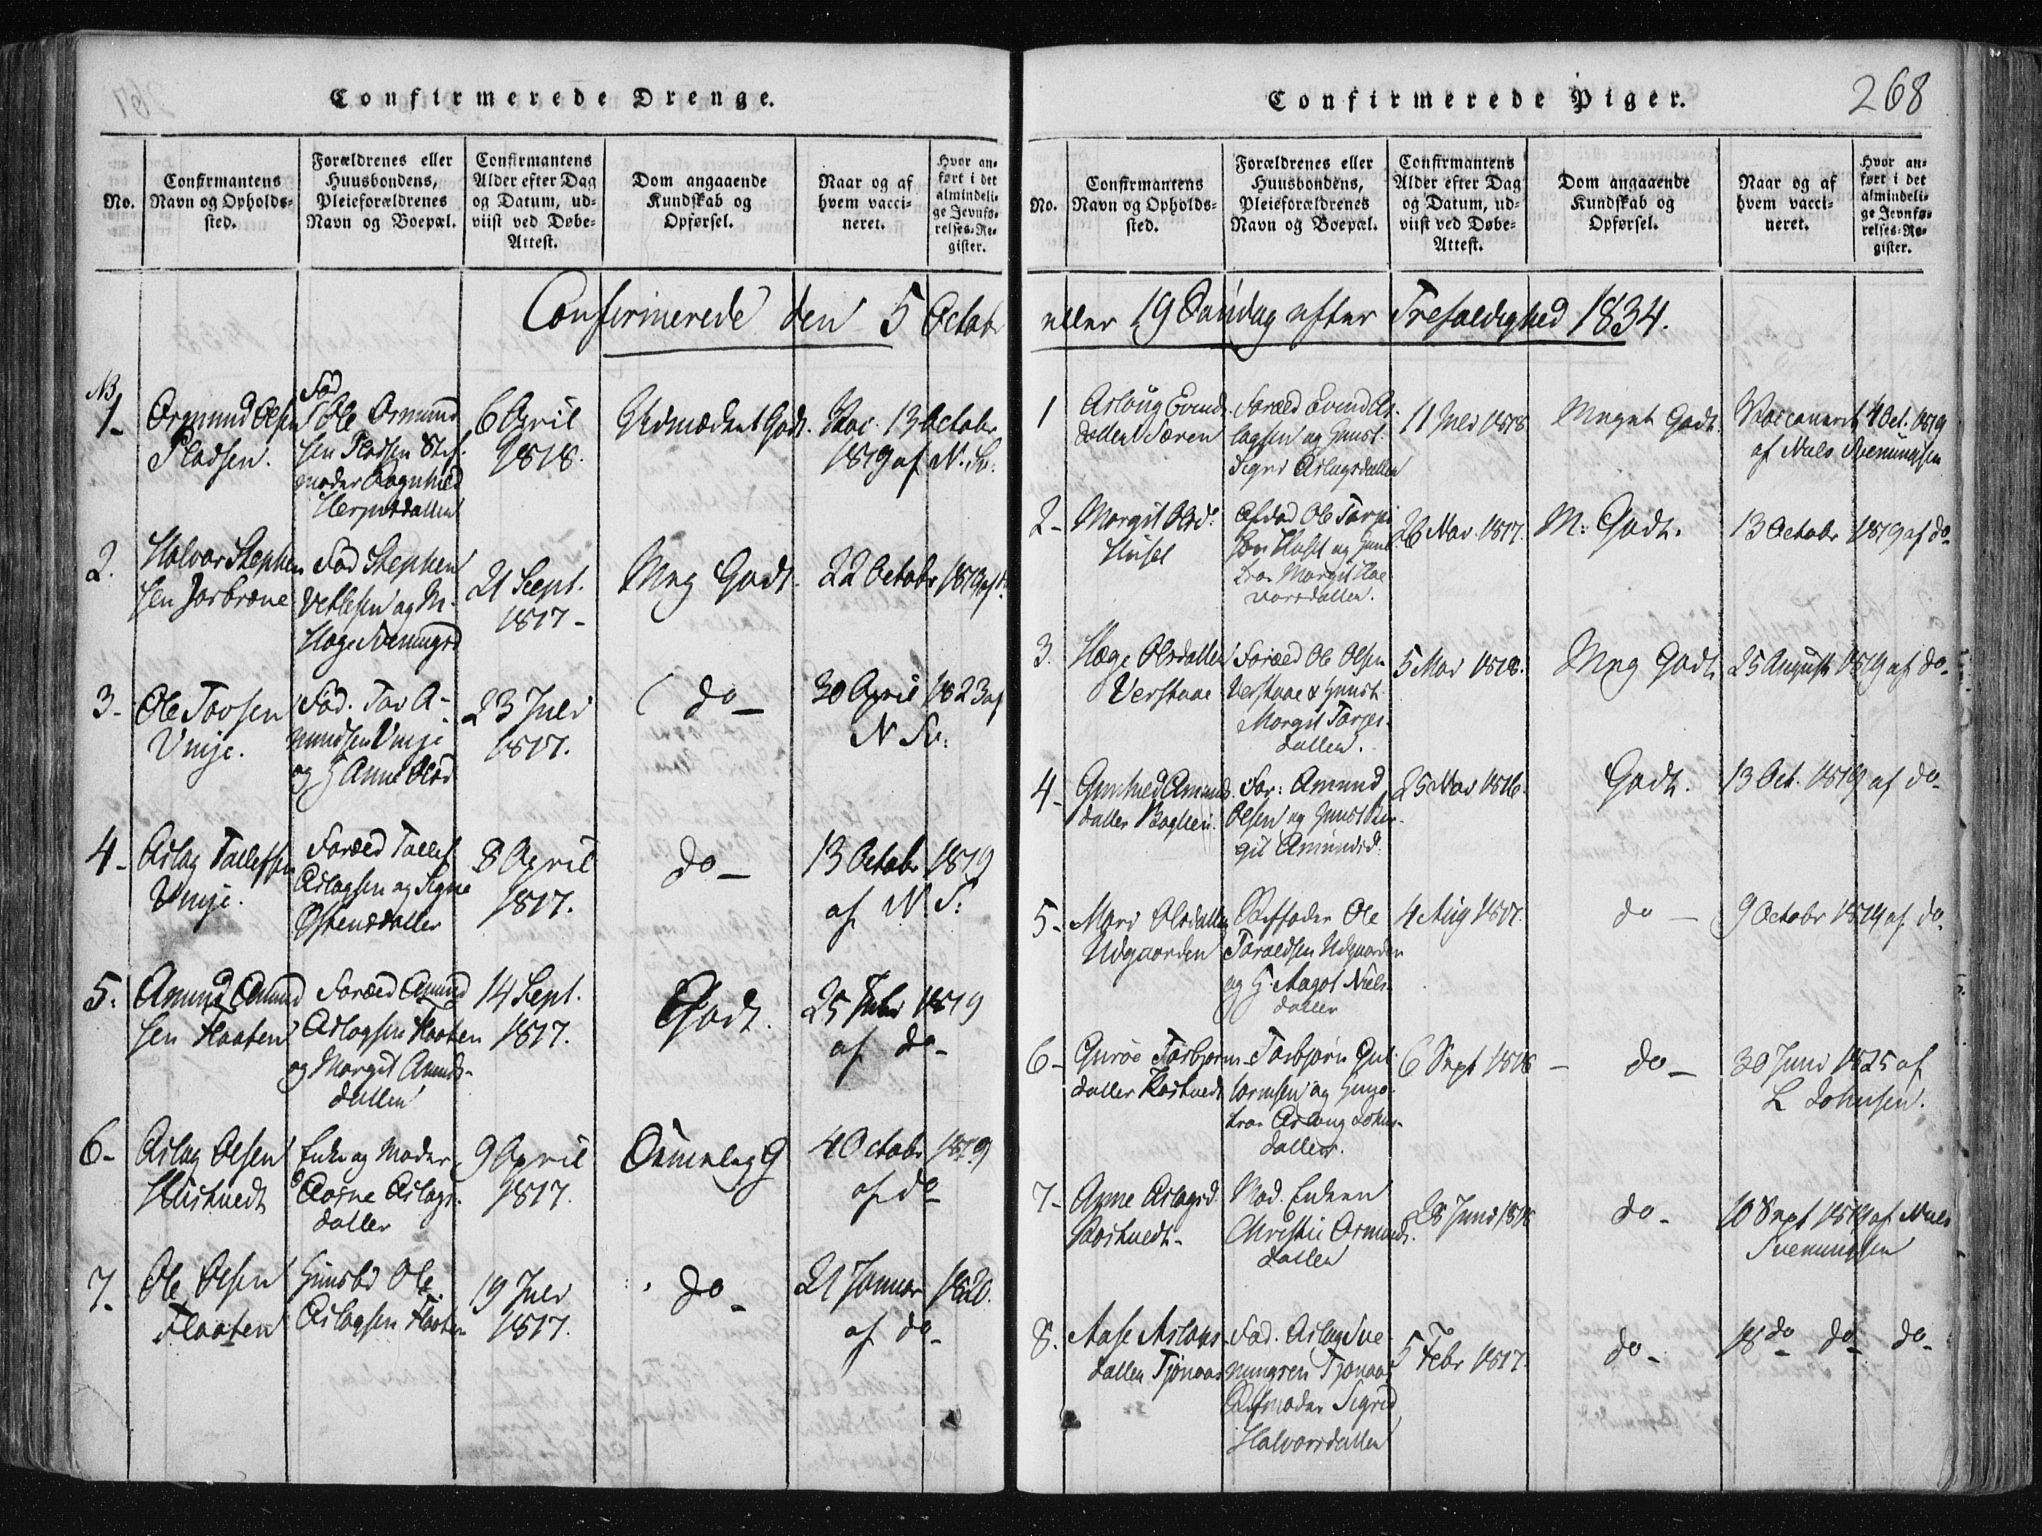 Confirmerede Drenge.
No.
Confirmantens
Navn og Opholds-
sted.
Forældrenes eller
Huusbondens,
Pleieforældrenes
Navn og Boepæl.
Confirmantens
Alder efter Dag
og Datum, ud-
viist ved Døbe-
Attest.
Dom angaaende
Kundskab og
Opførsel.
Naar og af
hvem vacci-
neret.
Hvor an-
ført i det
almindeli-
ge Jevnfø-
relses-Re-
gister.
Confirmerede den 5 Octobr
NB
1-
Asmund Olsen
Pladsen.
Fad
Ole Asmund
sen Pladsen Stif-
moder Ragnhild
Herjusdatter
6 April
1818.
Udmærket Godt.
Vac. 13 Octobr
1819 af N. Sv.
2.
Halvor Stephen
sen Jorbrone
Fad Stephen
Vetlesen og M.
Hæge Svenungsd
21 Sept.
1817-
Meg Godt.
22 Octobr 1819 af
3-
Ole Tovsen
Vinje.
Fad. Tov A-
mundsen Vinje
og H Anne Olsd
23 Juli
1817.
do-
30 April 1823 af
N Sv:
4-
Aslag Tallefsen
Vinje.
Foræld Tallef
Aslagsen og Signe
Østensdatter
8 April
1817.
do-
13 Octobr 1819
af N. S:
5.
Amund Amund
sen Flaaten
Foræld Amund
Aslagsen Flaaten
og Margit Amunds-
datter
14 Sept.
1817.
Godt.
25 Juli 1819
af do-
6-
Aslag Olsen
Enke og Moder
Aasne Aslags-
datter
9 April
1817.
4 Octobr 1819
af do
7-
Ole Olsen
Flaaten
Huusbd Ole
Aslagsen Flaaten
19 Juli
1817.
do-
21 Januar 1820.
af do-
Confirmerede Piger.
268
No.
Confirmantens
Navn og Opholds-
sted.
Forældrenes eller
Huusbondens,
Pleieforældrenes
Navn og Boepæl.
Confirmantens
Alder efter Dag
og Datum, ud-
viist ved Døbe-
Attest.
Dom angaaende
Kundskab og
Opførsel.
Naar og af
hvem vacci-
neret.
Hvor an-
ført i det
almindeli-
ge Jevnfø-
relses-Re-
gister.
eller 19 Søndag efter Trefoldighed 1834.
1
Aslaug Evind
datter Særen
Foræld Evind As-
lagsen og Huust.
Sigri Aslagsdatter
11 Juli 1818
Meget Godt
Vaccineret 4 Oct. 1819
af Niels Svenungsen
2-
Margit Olsd.
Huset
Afdød Ole Torje
sen Huset og Huus
troe Margit Hal
vorsdatter.
26 Nov. 1817.
M: Godt.
13 Octobr 1819 af do
3.
Hæge Olsdatter
Verstaae
Foræld Ole Olsen
Verstaae & Huust
Margit Torjes-
datter.
5 Mai 1818.
Meg Godt
25 August 1819 af do
4-
Gunhild Amunds
datter Bøglien
For: Amund
Olsen og Huust Ber-
git Amundsd.
25 Nov 1816.
Godt.
13 Oct. 1819 af do-
5-
Mari Olsdatter
Udgaarden
Stiffader Ole
Toraldsen Udgaarden
og H. Aagot Niels-
datter
4 Aug 1817.
do-
9 Octobr 1819 af do.
6-
Guroe Torbjørns-
datter Rostvedt
Torbjørn Gut-
tormsen og Huus-
troe Aslaug Johns-
datter.
6 Sept 1818
do-
30 Juni 1825 af
L Johnsen.
7-
Anne Aslagsd.
Rostvedt-
Mod. Enken
Christie Asmunds
datter
28 Juni 1818
do-
10 Sept 1819 af Niels
Svenungsen
8.
Aase Aslags-
datter Tjønaas
Fad. Aslag Sve
nungsen Tjønaas
Stifmoder Sigrid
Halvorsdatter
5 Febr 1817.
do-
18 do do- do-